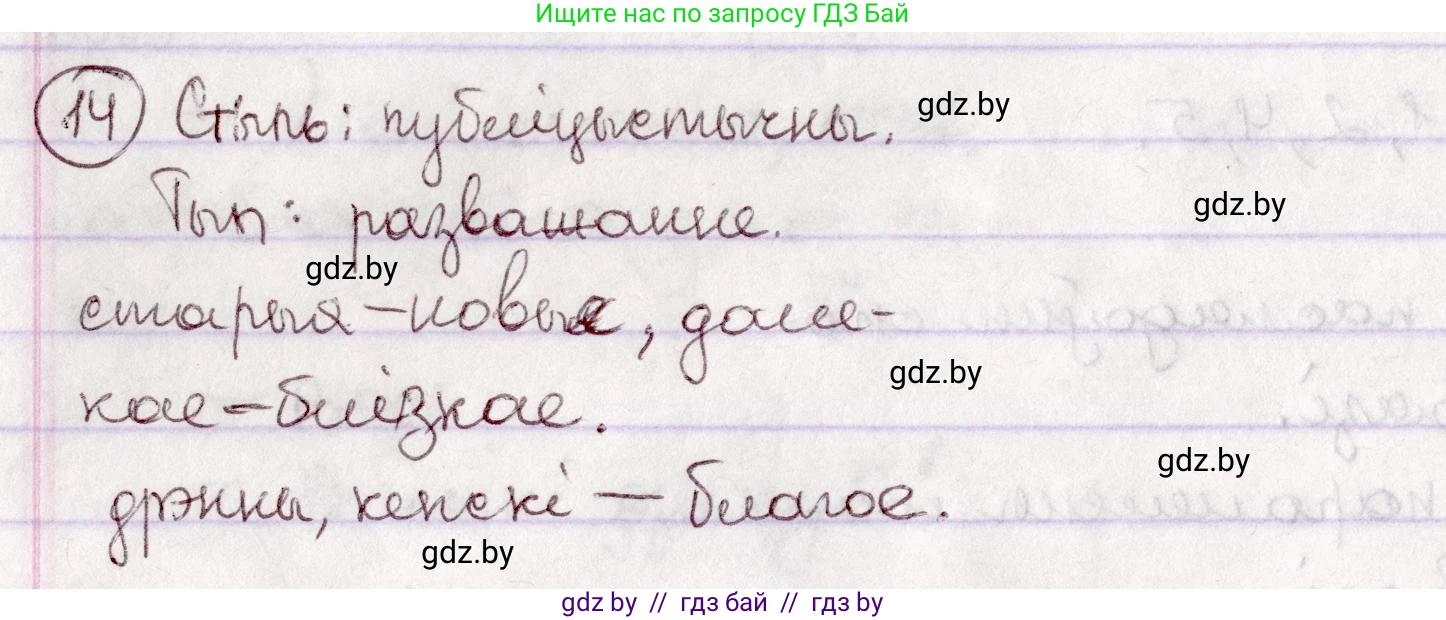 Ищите нас по запросу ГДЗ Бай
14 Стыль: публіцыстычны. gdz.by
Тып: разважанне. gdz.by
gdz.by
старыя – новыя, дале-
кае – блізкае. gdz.by
gdz.by
дрэнны, кепскі — благое.
gdz.by
gdz by // гдз бай // гдз by